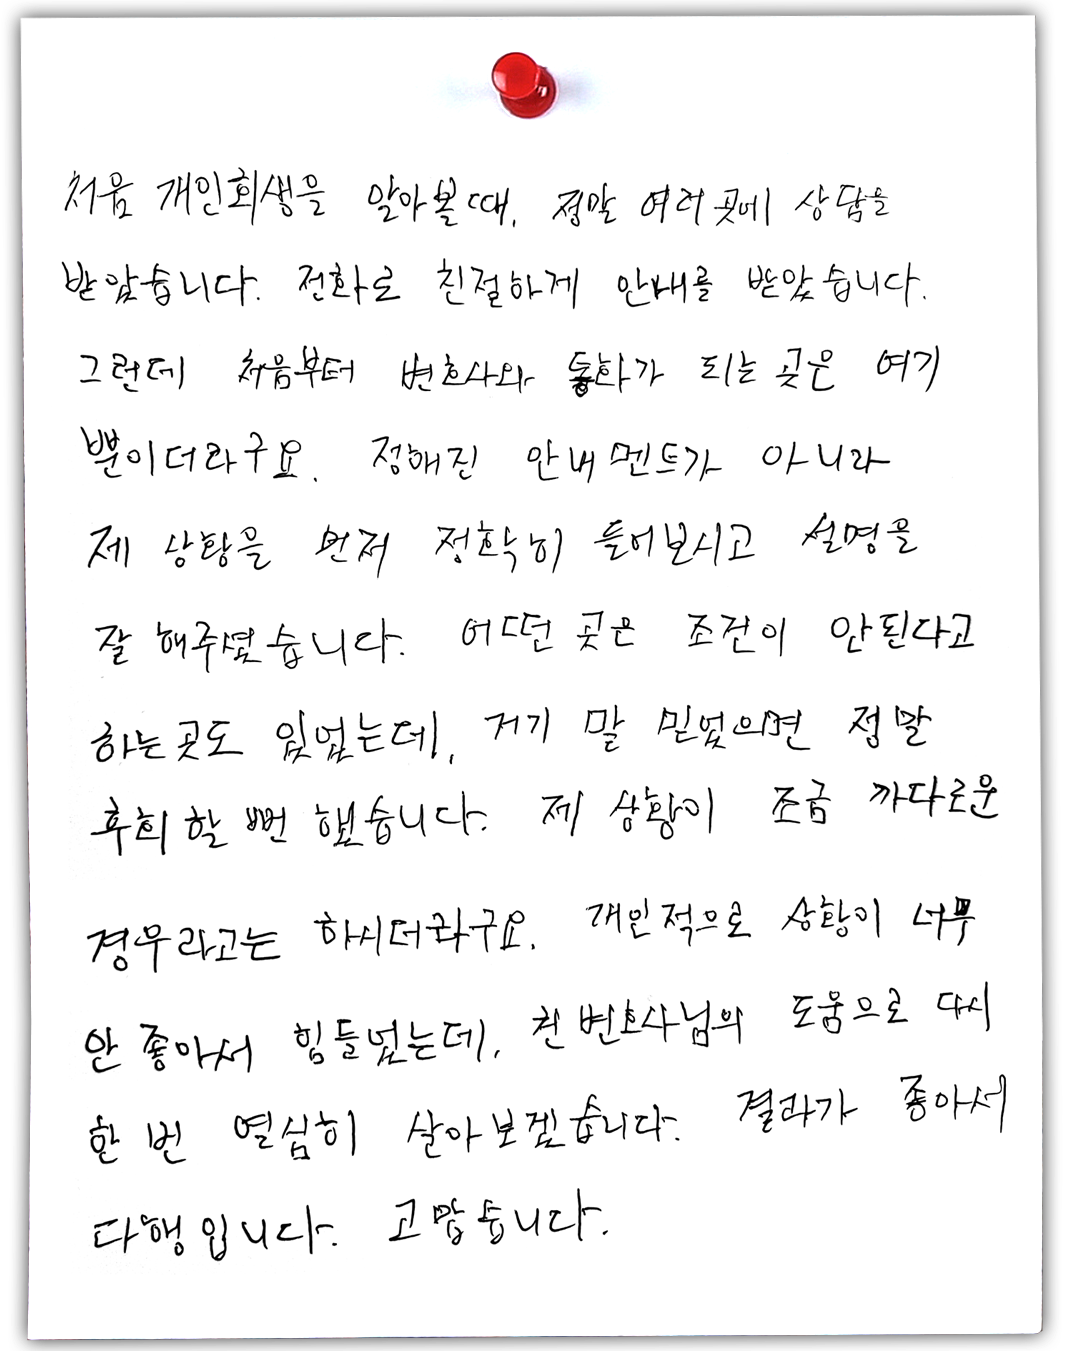 처음 개인회생을 알아볼때, 정말 여러곳에 상담을
받았습니다. 전화로 친절하게 안내를 받았습니다.
그런데 처음부터 변호사와 통화가 되는 곳은 여기
뿐이더라구요. 정해진 안내멘트가 아니라
제 상황을 먼저 정확히 들어보시고 설명을
잘 해주셨습니다. 어떤 곳은 조건이 안된다고
하는곳도 있었는데, 거기 말 믿었으면 정말
후회할 뻔 했습니다. 제 상황이 조금 까다로운
경우라고는 하시더라구요. 개인적으로 상황이 너무
안 좋아서 힘들었는데, 천 변호사님의 도움으로 다시
한 번 열심히 살아보겠습니다. 결과가 좋아서
다행입니다. 고맙습니다.